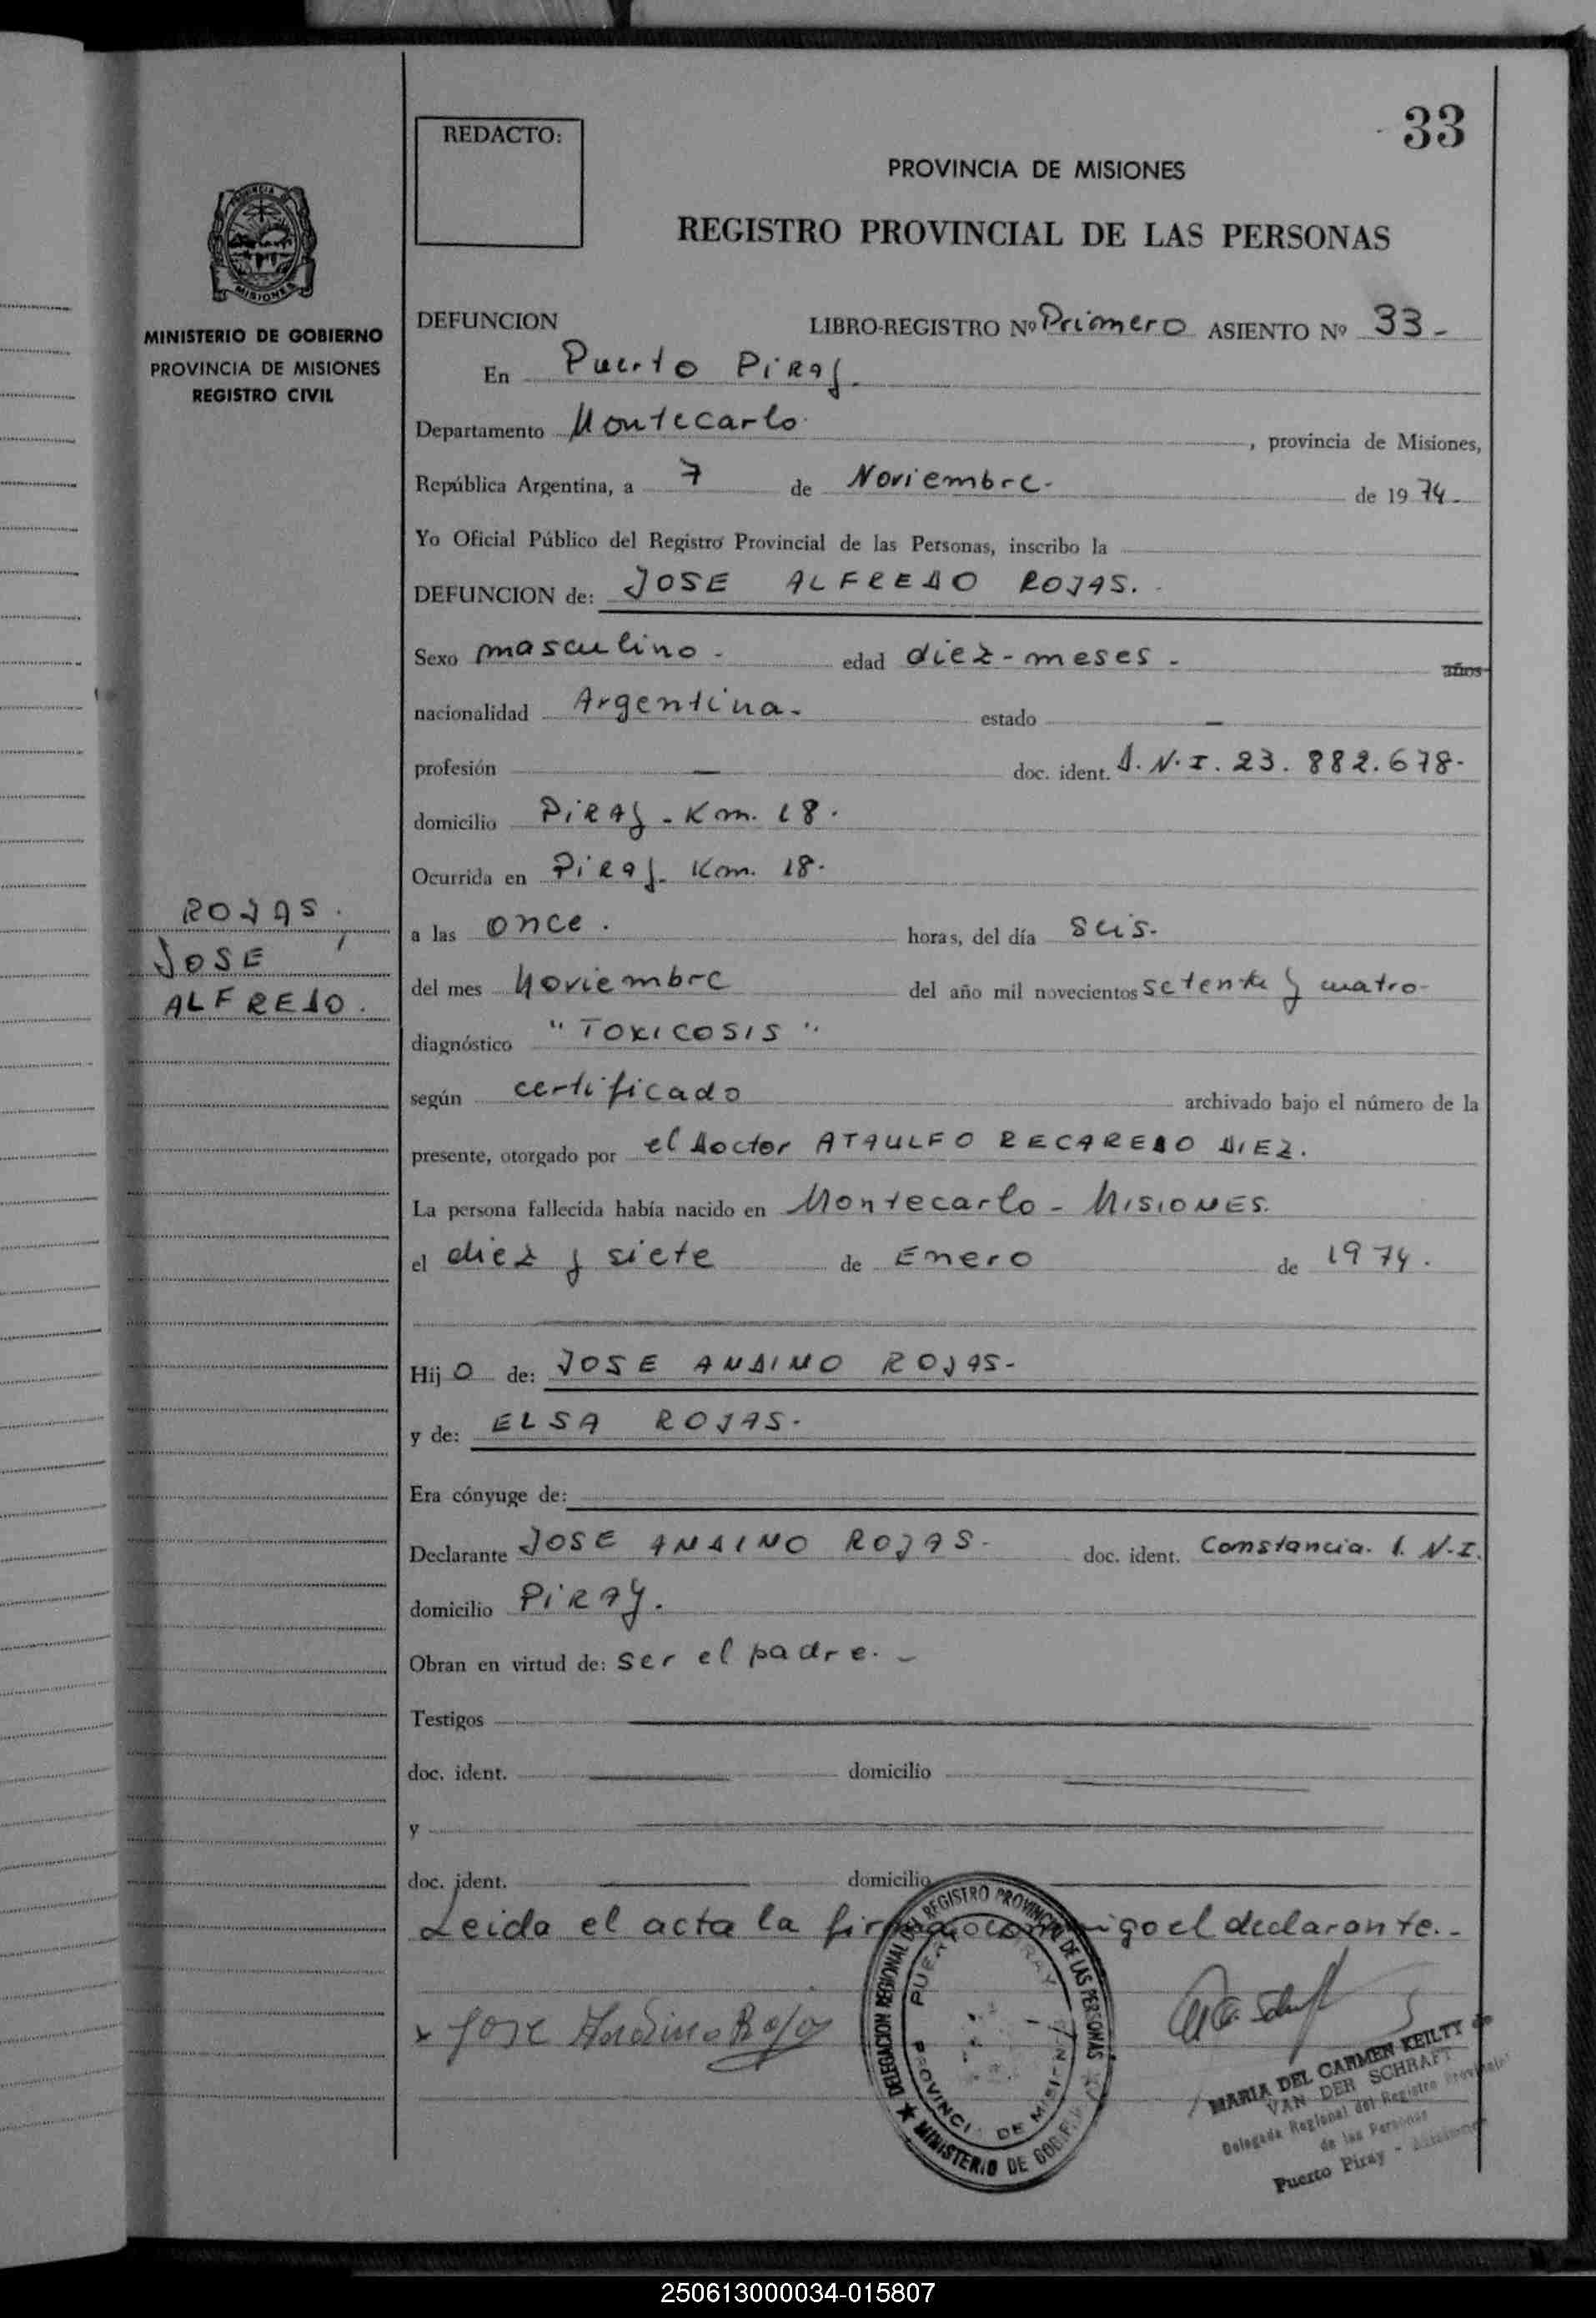 33
REDACTO:
PROVINCIA DE MISIONES
REGISTRO PROVINCIAL DE LAS PERSONAS
PROVINCIA DE
MISIONES
MINISTERIO DE GOBIERNO
PROVINCIA DE MISIONES
REGISTRO CIVIL
DEFUNCION LIBRO-REGISTRO Nº Primero ASIENTO Nº 33-
En Puerto Piray.
Departamento Montecarlo , provincia de Misiones,
República Argentina, a 7 de Noviembre. de 1974-
Yo Oficial Público del Registro Provincial de las Personas, inscribo la
DEFUNCION de: JOSE ALFREDO ROJAS.
Sexo masculino- edad diez-meses- años
nacionalidad Argentina- estado -
profesión - doc. ident. D.N.I. 23.882.678-
domicilio PIRAY-Km. 18.
Ocurrida en PIRAY- Km. 18.
ROJAS.
JOSE
ALFREDO.
a las once. horas, del día seis-
del mes Noviembre del año mil novecientos setenta y cuatro-
diagnóstico "TOXICOSIS"
según certificado archivado bajo el número de la
presente, otorgado por el Doctor ATAULFO RECAREDO DIEZ.
La persona fallecida había nacido en Montecarlo - MISIONES.
el diez y siete de Enero de 1974.
Hijo de: JOSE ANDINO ROJAS-
y de: ELSA ROJAS-
Era cónyuge de:
Declarante JOSE ANDINO ROJAS- doc. ident. Constancia. D.N.I.
domicilio PIRAY.
Obran en virtud de: ser el padre.-
Testigos
doc. ident. domicilio
y
doc. ident. domicilio
Leida el acta la firma conmigo el declarante.-
x Jose Andino Rojas
DELEGACION REGIONAL DEL REGISTRO PROVINCIAL DE LAS PERSONAS
PUERTO PIRAY
PROVINCIA DE MISIONES
★ MINISTERIO DE GOB.
MARIA DEL CARMEN KEILTY de
VAN DER SCHRAFT
Delegada Regional del Registro Provincial
de las Personas
Puerto Piray -
250613000034-015807